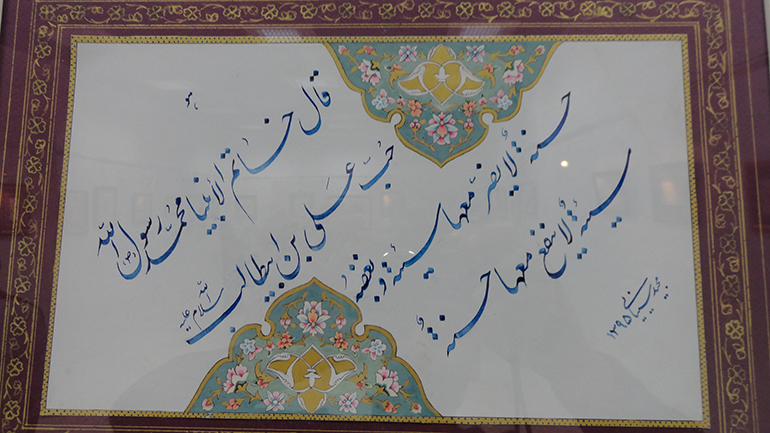 قال خاتم الأنبیاء محمد رسول الله (ص)
حُبّ عَلی بن ابیطالب سلام الله علیه
حسنة لاُیضرّ معها سیئة و بغضه
سیئة لاُ ینفع معها حسنة
۱۳۹۵